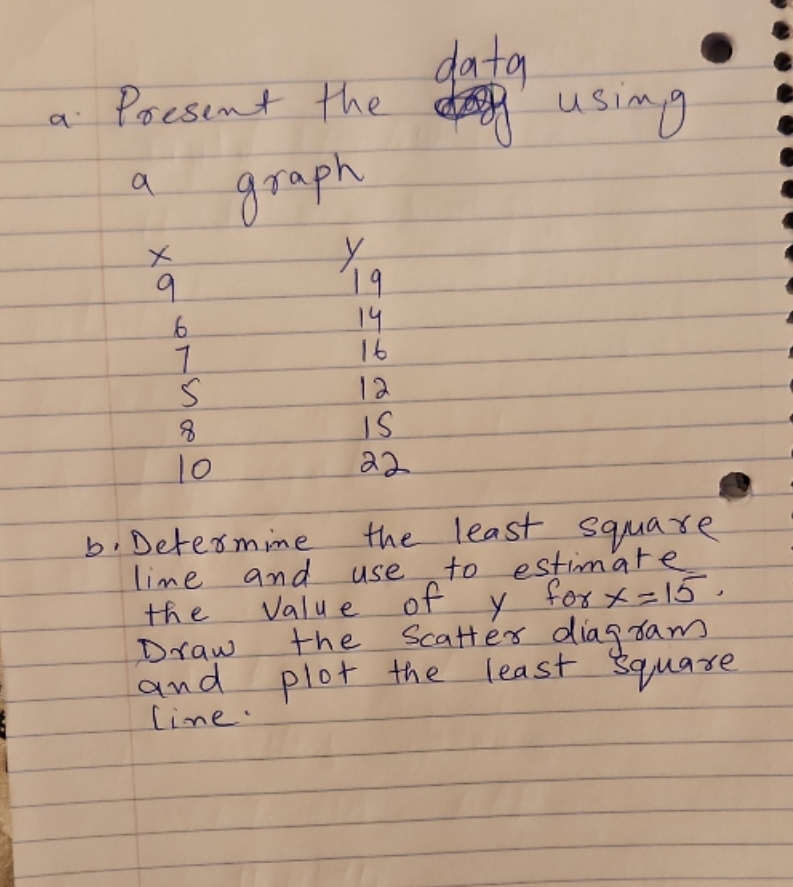 a. Present the data using
a graph
x y
9 19
6 14
7 16
5 12
8 15
10 22
b. Determine the least square
line and use to estimate
the value of y for x = 15.
Draw the scatter diagram
and plot the least square
line.